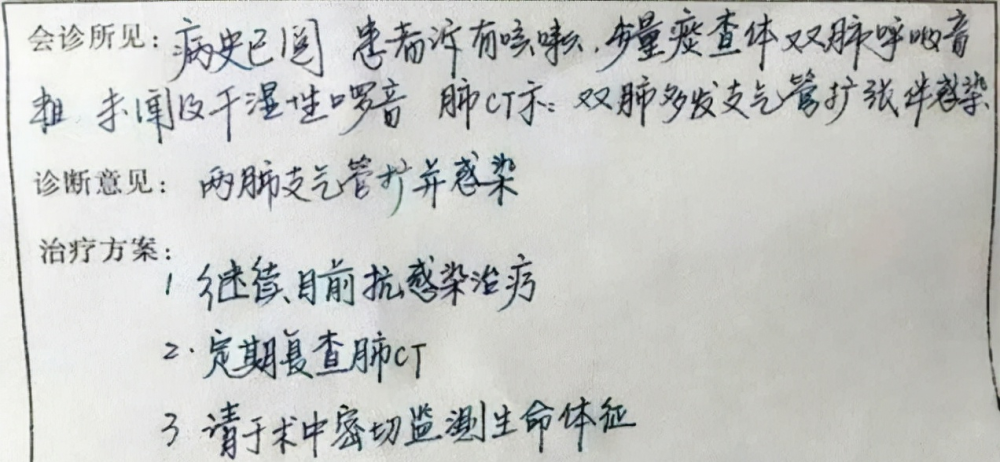 会诊所见：病史已阅 患者诉有咳嗽，少量痰查体双肺呼吸音
粗 未闻及干湿性啰音 肺CT示：双肺多发支气管扩张伴感染
诊断意见：两肺支气管扩并感染
治疗方案：
1 继续目前抗感染治疗
2. 定期复查肺CT
3 请于术中密切监测生命体征